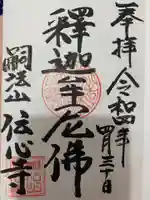 奉拝 令和四年
四月三十日
釋迦牟尼佛
山 信心寺